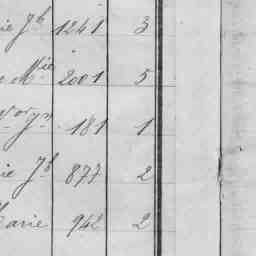 ie Jh 1241 3
e Mie 2001 5
Vor Jn 181 1
ie Jh 877 2
Marie 942 2